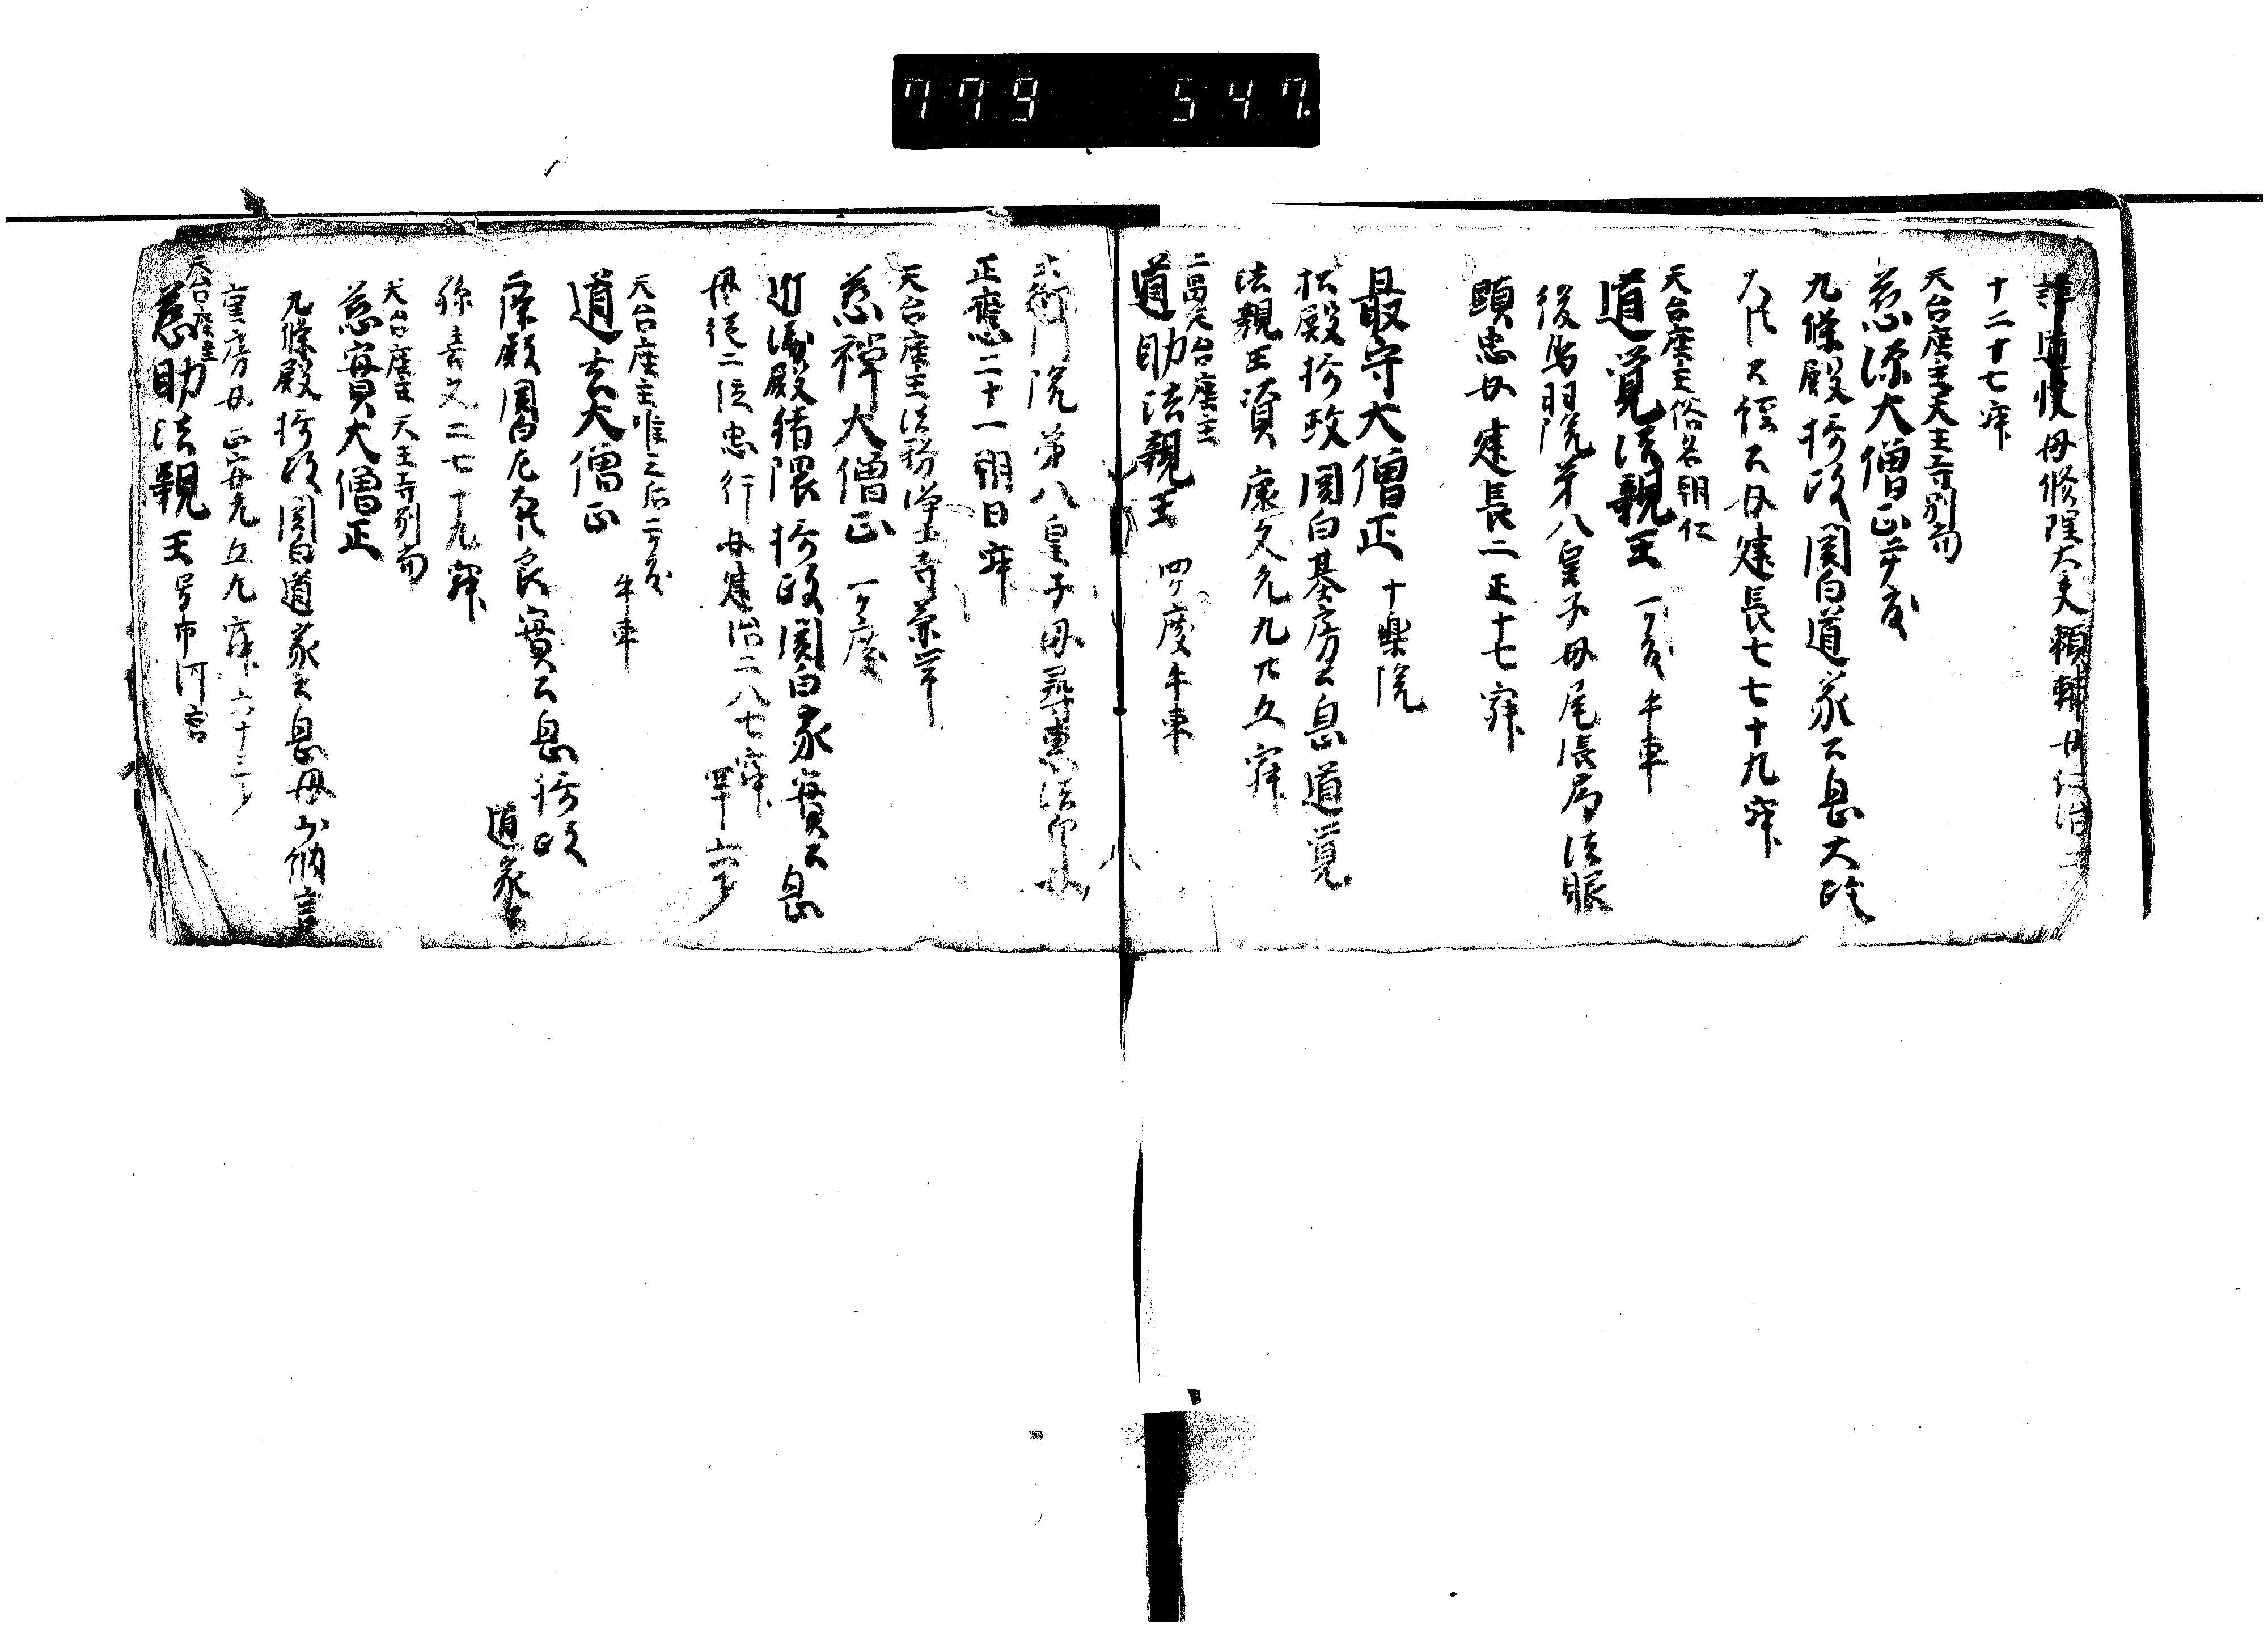 779 547.
諱道慢母修理大夫頼輔女仁治二
十二十七寂
天台座主天王寺別当
慈源大僧正 二ケ度
九條殿摂政関白道家公息 大政
大臣公経公女建長七七十九寂
天台座主俗名朝仁
道覚法親王 一ケ度 牛車
後鳥羽院第八皇子母尾張局法眼
顕忠女 建長二正十七寂
最守大僧正 十樂院
松殿摂政関白基房公息 道覚
法親王資 康元元九廿五寂
二品天台座主
道助法親王 四ケ度 牛車
土御門院第八皇子母尋恵法印女
正應二十一朔日寂
天台座主法務浄土寺
慈禅大僧正 一ケ度
近衛殿猪隈摂政関白家實公息
母従二位忠行女建治二八七寂
四十六才
天台座主 二ケ度
道玄大僧正 牛車
二条殿関白左大臣良實公息 摂政
道家公
孫 嘉元二七十九寂
天台座主 天王寺別当
慈實大僧正
九條殿摂政関白道家公息母少納言
重房女 正安元五九寂 六十三才
天台座主
慈助法親王